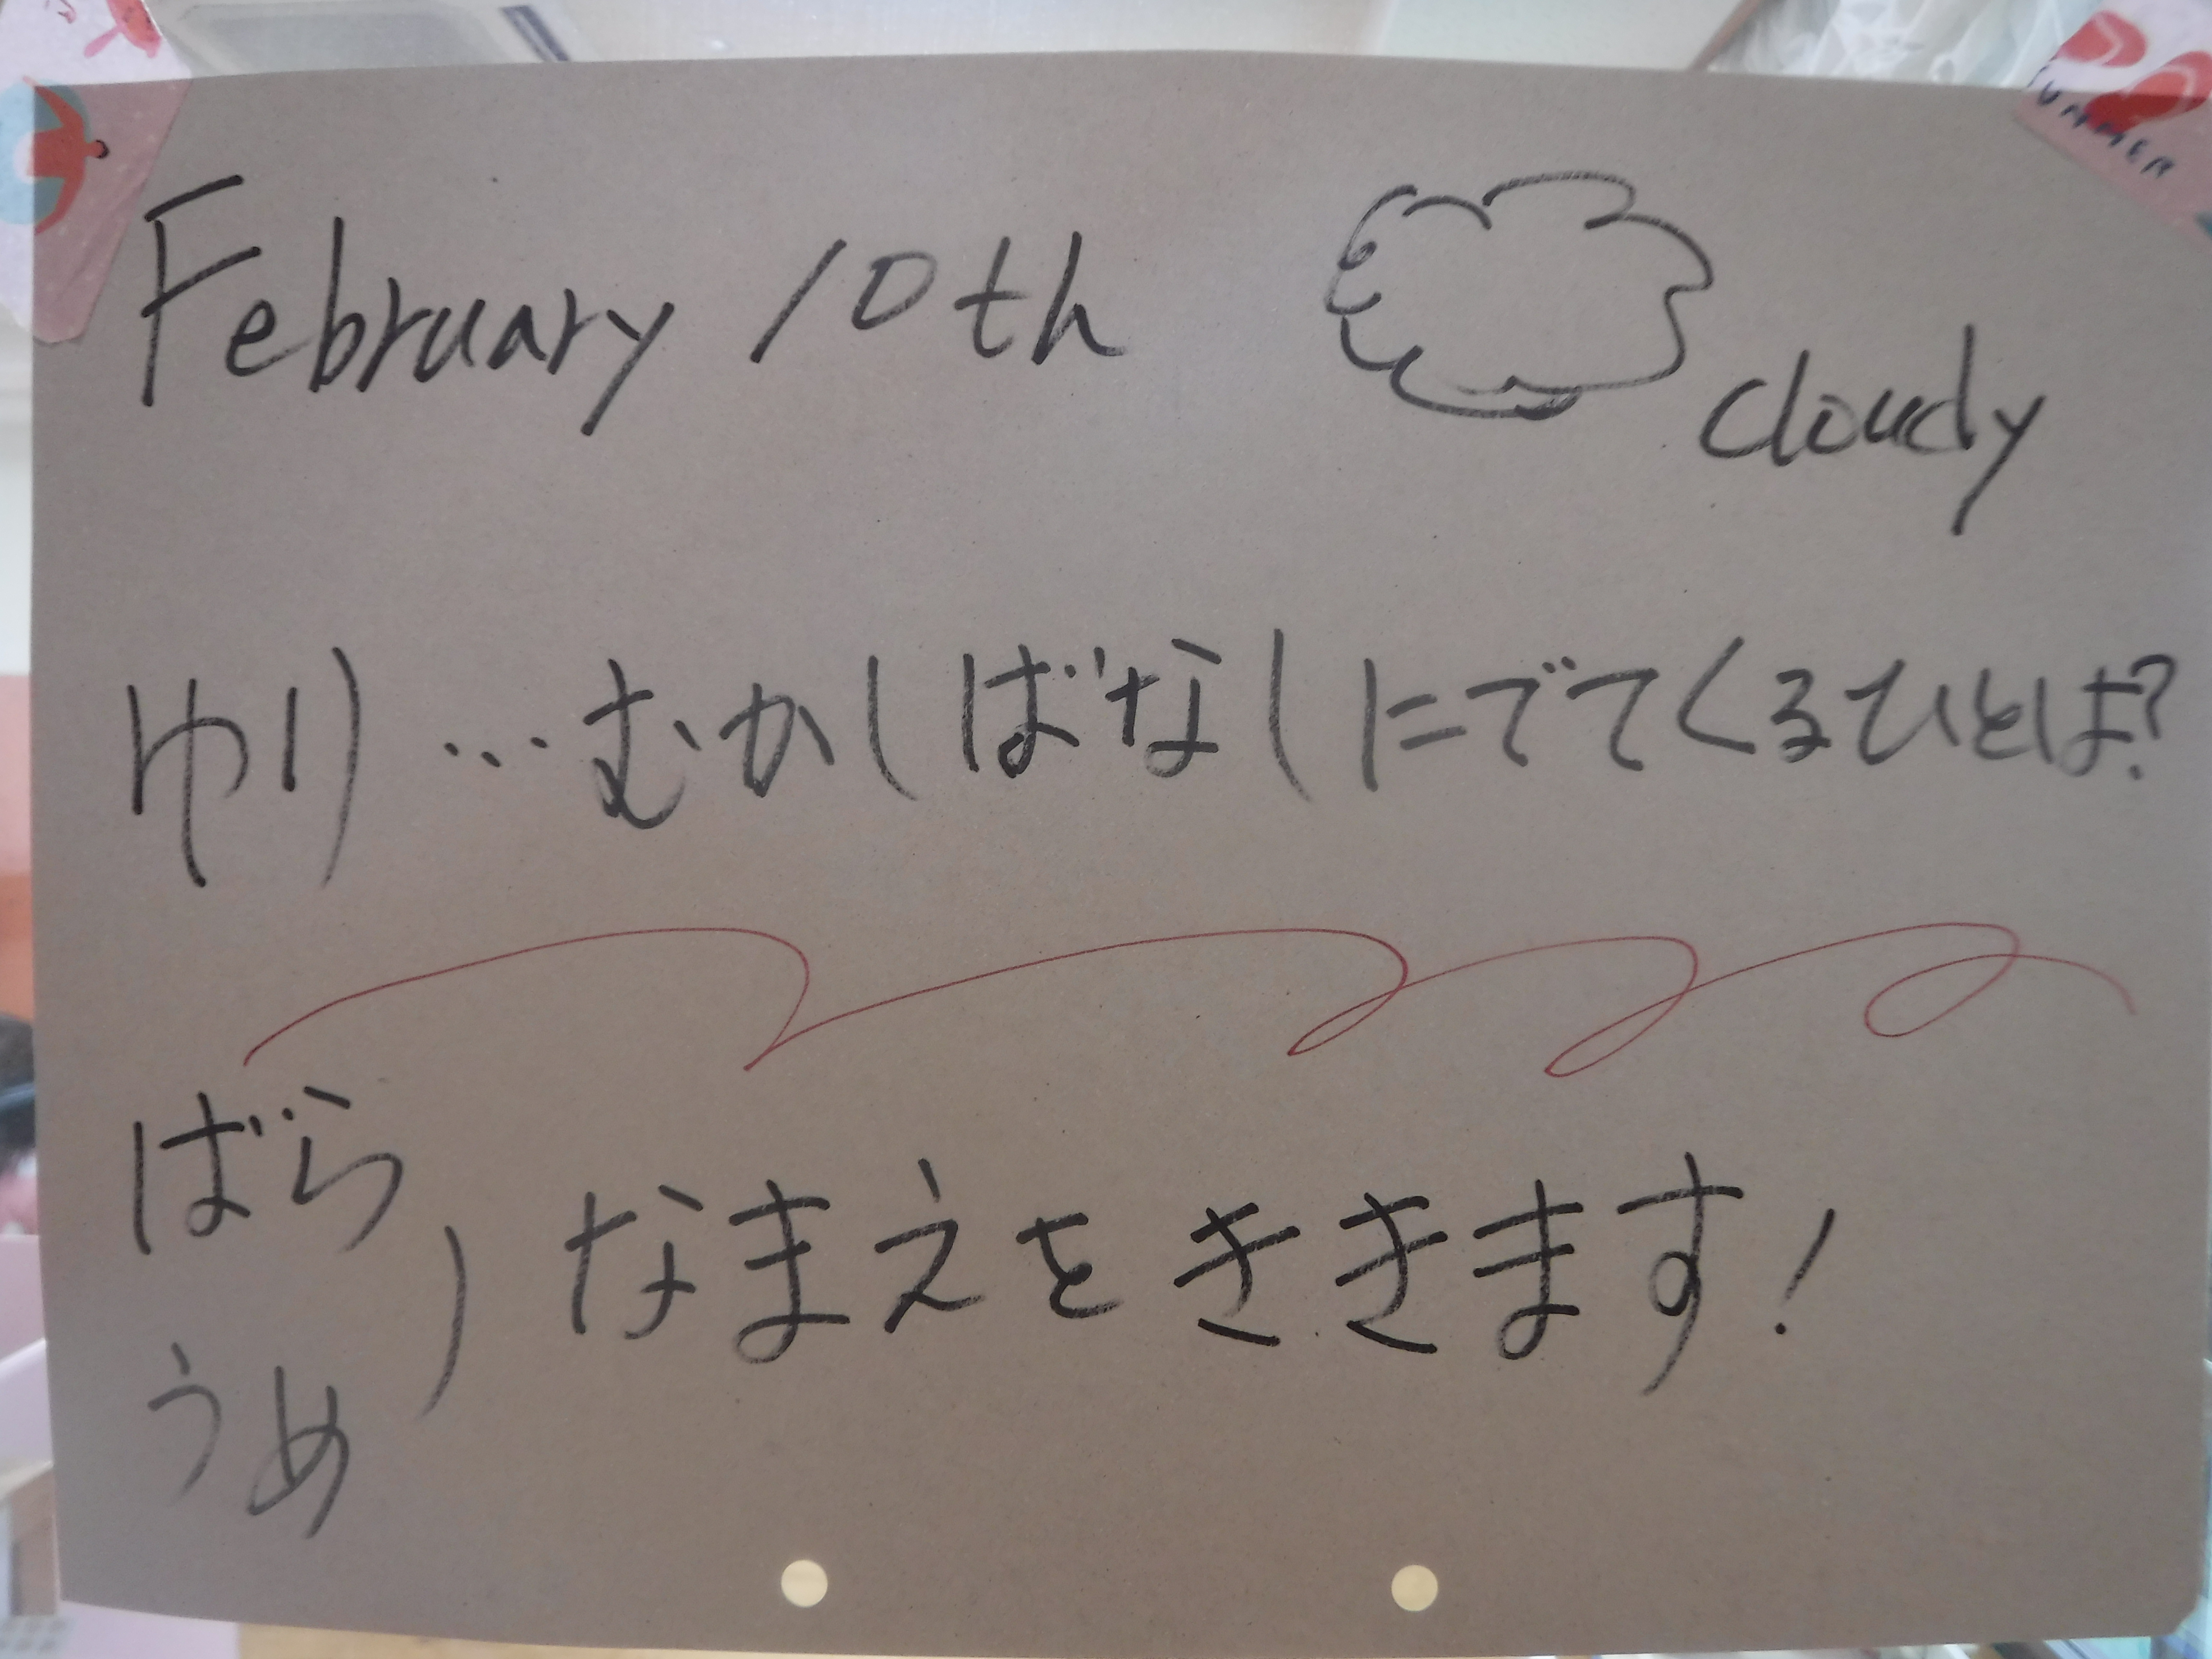 SUMMER
February 10th
cloudy
ゆり…むかしばなしにでてくるひとは?
ばら
うめ
) なまえをききます!